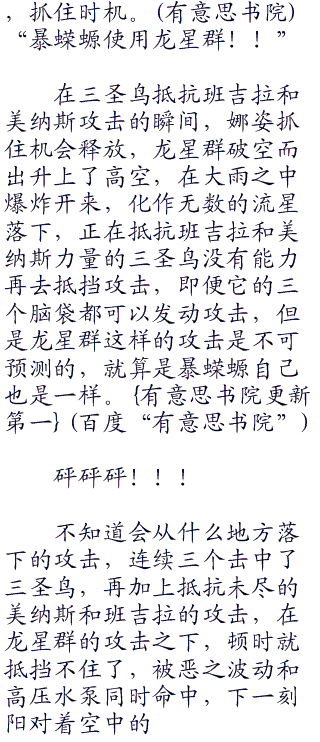 ，抓住时机。(有意思书院)
“暴蝾螈使用龙星群！！”
在三圣鸟抵抗班吉拉和
美纳斯攻击的瞬间，娜姿抓
住机会释放，龙星群破空而
出升上了高空，在大雨之中
爆炸开来，化作无数的流星
落下，正在抵抗班吉拉和美
纳斯力量的三圣鸟没有能力
再去抵挡攻击，即便它的三
个脑袋都可以发动攻击，但
是龙星群这样的攻击是不可
预测的，就算是暴蝾螈自己
也是一样。{有意思书院更新
第一}(百度“有意思书院”)
砰砰砰！！！
不知道会从什么地方落
下的攻击，连续三个击中了
三圣鸟，再加上抵抗未尽的
美纳斯和班吉拉的攻击，在
龙星群的攻击之下，顿时就
抵挡不住了，被恶之波动和
高压水泵同时命中，下一刻
阳对着空中的